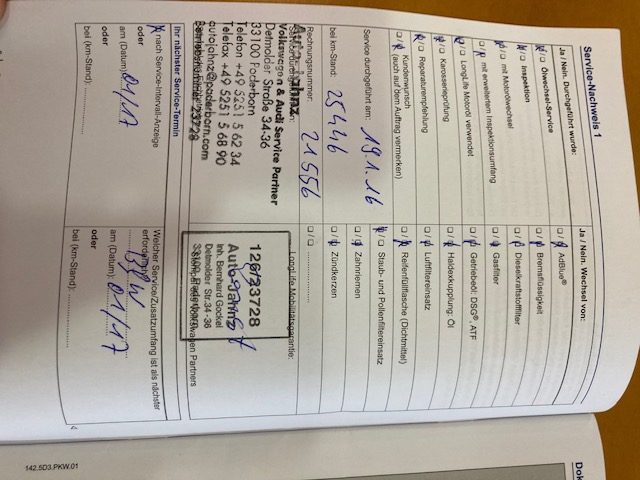 Service-Nachweis 1
Ja / Nein. Durchgeführt wurde:
Ölwechsel-Service
Inspektion
mit Motorölwechsel
mit erweitertem Inspektionsumfang
LongLife Motoröl verwendet
Karosserieprüfung
Reparaturempfehlung
Kundenwunsch
(auch auf dem Auftrag vermerken)
Service durchgeführt am: 19.1.16
bei km-Stand: 25446
Rechnungsnummer: 21556
Volkswagen & Audi Service Partner
Detmolder Straße 34-36
33100 Paderborn
Telefon +49 5251 5 62 34
Telefax +49 5251 5 68 90
autojohnz@paderborn.com
23728
Ihr nächster Service-Termin
nach Service-Intervall-Anzeige
oder
am (Datum) 01/17
oder
bei (km-Stand):
Ja / Nein. Wechsel von:
AdBlue®
Bremsflüssigkeit
Dieselkraftstofffilter
Gasfilter
Getriebeöl: DSG®, ATF
Haldexkupplung: Öl
Luftfiltereinsatz
Reifenfüllflasche (Dichtmittel)
Staub- und Pollenfiltereinsatz
Zahnriemen
Zündkerzen
LongLife Mobilitätsgarantie:
120/23728
Inh. Bernhard Gockel
Detmolder Str. 34-36
33100 Paderborn
Welcher Service/Zusatzumfang ist als nächster
erforderlich
am (Datum) 01/17
oder
bei (km-Stand):
4
142.5D3.PKW.01
Dok